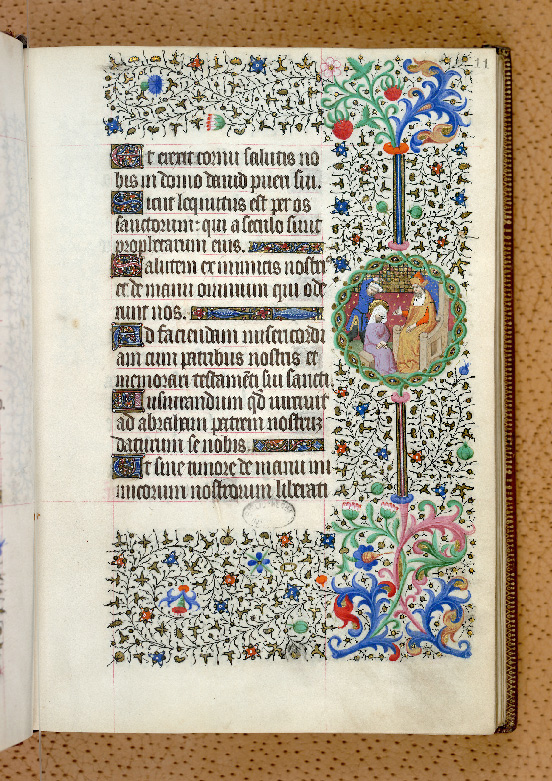 11
Et erexit cornu salutis no
bis in domo dauid pueri sui.
Sicut locutus est per os
sanctorum: qui a seculo sunt
prophetarum eius.
Salutem ex inimicis nostris
et de manu omnium qui ode
runt nos.
Ad faciendam misericordi
am cum patribus nostris et
memorari testamẽti sui sancti.
Iusiurandum qd̃ iurauit
ad abraham patrem nostrum
daturum se nobis.
Et sine timore de manu ini
micorum nostrorum liberati